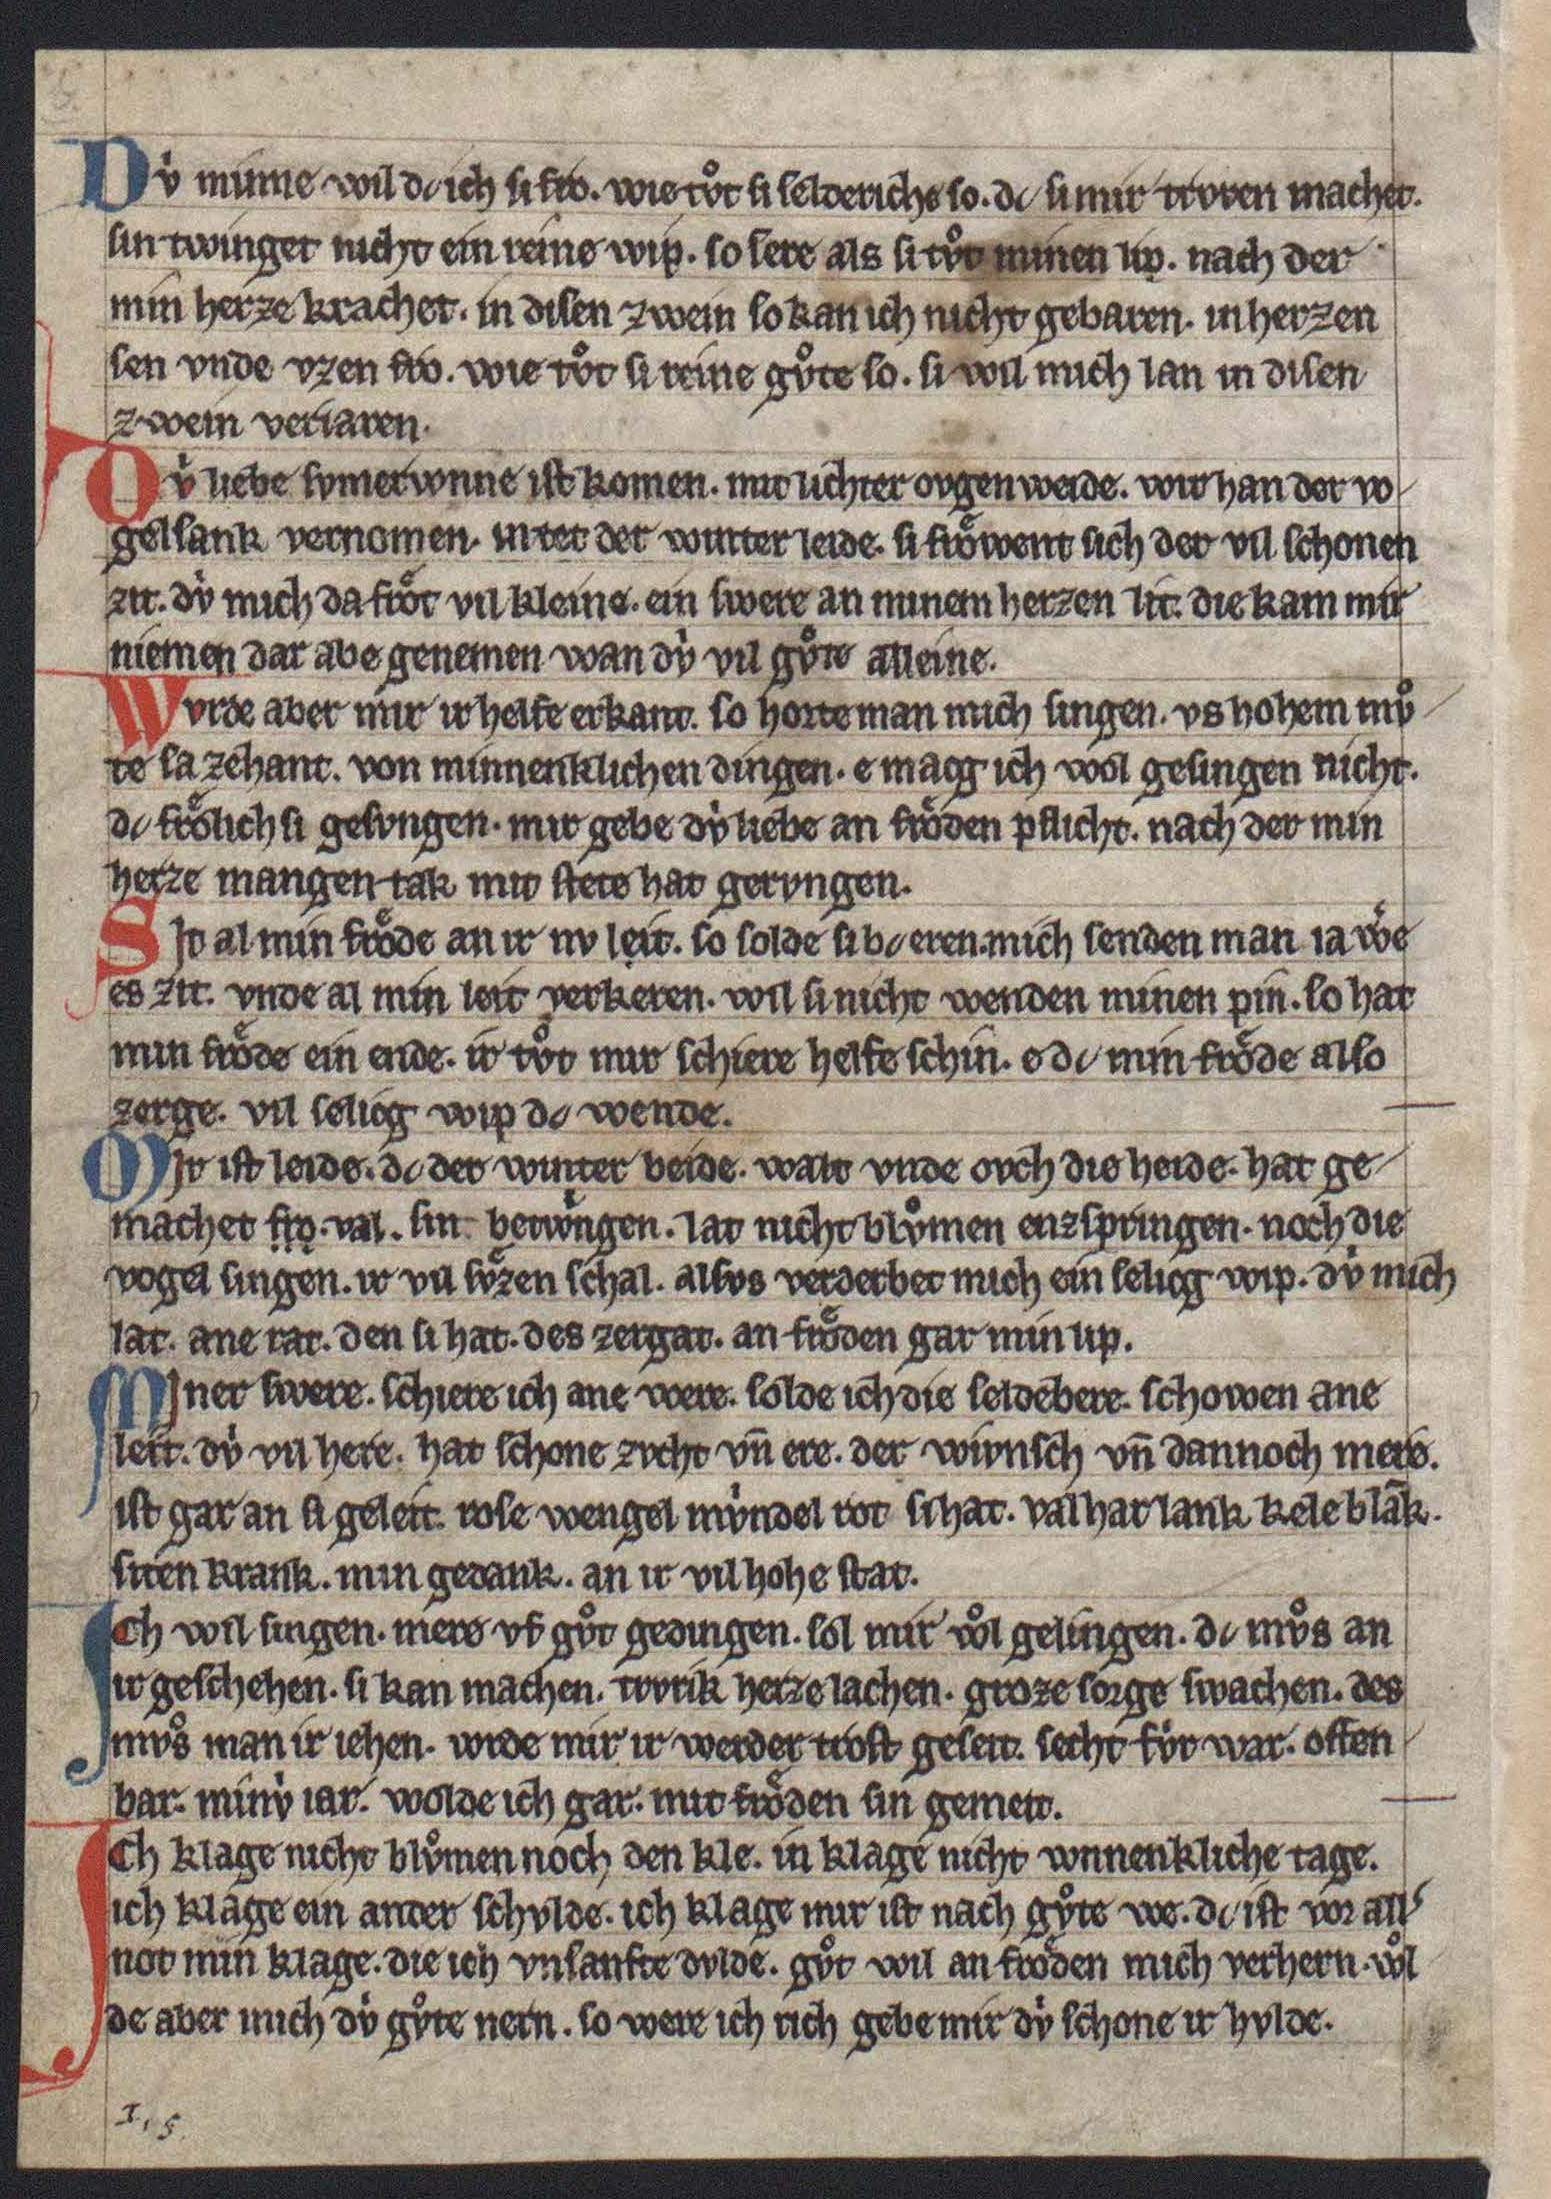 Dv̍ minne wil dc ich si fro. wie tv̊t si selderichs so. dc si mir trvren machet.
sin twinget nicht ein reine wip. so sere als si tv̊t minen lip. nach der
min herze krachet. in disen zwein so kan ich nicht gebaren. in herzen
sen vnde vzen fro. wie tv̊t si reine gv̊te so. si wil mich lan in disen
zwein veriaren.
Dv̍ liebe svmerwnne ist komen. mit lichter ovgen weide. wir han der vo
gelsank vernomen. in tet der winter leide. si froͤwent sich der vil schonen
zit. dv̍ mich da froͤt vil kleine. ein swere an minem herzen lit. die kam mir
niemen dar abe genemen wan dv̍ vil gv̊te alleine.
Wvrde aber mir ir helfe erkant. so horte man mich singen. vs hohem mv̊
te sa zehant. von minnenklichen dingen. e macg ich wol gesingen nicht.
dc froͤlich si gesvngen. mir gebe dv̍ liebe an froͤden pflicht. nach der min
herze mangen tak mit stete hat gervngen.
SIt al min froͤde an ir nv leit. so solde si bc eren. mich senden man ia wͤe
es zit. vnde al min leit verkeren. wil si nicht wenden minen pin. so hat
min froͤde ein ende. ir tv̊t mir schiere helfe schin. e dc min froͤde also
zerge. vil selicg wip dc wende.
MIr ist leide. dc der winter beide. walt vnde ovch die heide. hat ge
machet fro. val. sin betwͤngen. lat nicht blv̊men enzspringen. noch die
vogel singen. ir vil svͤzen schal. alsvs verderbet mich ein selicg wip. dv̍ mich
lat. ane rat. den si hat. des zergat. an froͤden gar min lip.
MIner swere. schiere ich ane were. solde ich die seldebere. schowen ane
leit. dv̍ vil here. hat schone zvcht vn̄ ere. der wivnsch vn̄ dannoch mere.
ist gar an si geleit. rose wengel mv̍ndel rot si hat. val har lank kele blāk.
siten krank. min gedank. an ir vil hohe stat.
ICh wil singen. mere vf gv̊t gedingen. sol mir wͦl gelingen. dc mv̊s an
ir geschehen. si kan machen. trvrik herze lachen. groze sorge swachen. des
mv̊s man ir iehen. wrde mir ir werder trost geseit. secht fv̍r war. offen
bar. minv̍ iar. wolde ich gar. mit froͤden sin gemeit.
ICh klage nicht blv̊men noch den kle. in klage nicht wnnenkliche tage.
ich klage ein ander schvlde. ich klage mir ist nach gv̊te we. dc ist vor all'
not min klage. die ich vnsanfte dvlde. gv̊t wil an froͤden mich verhern. wͦl
de aber mich dv̍ gv̊te nern. so were ich rich gebe mir dv̍ schone ir hvlde.
I, 5.